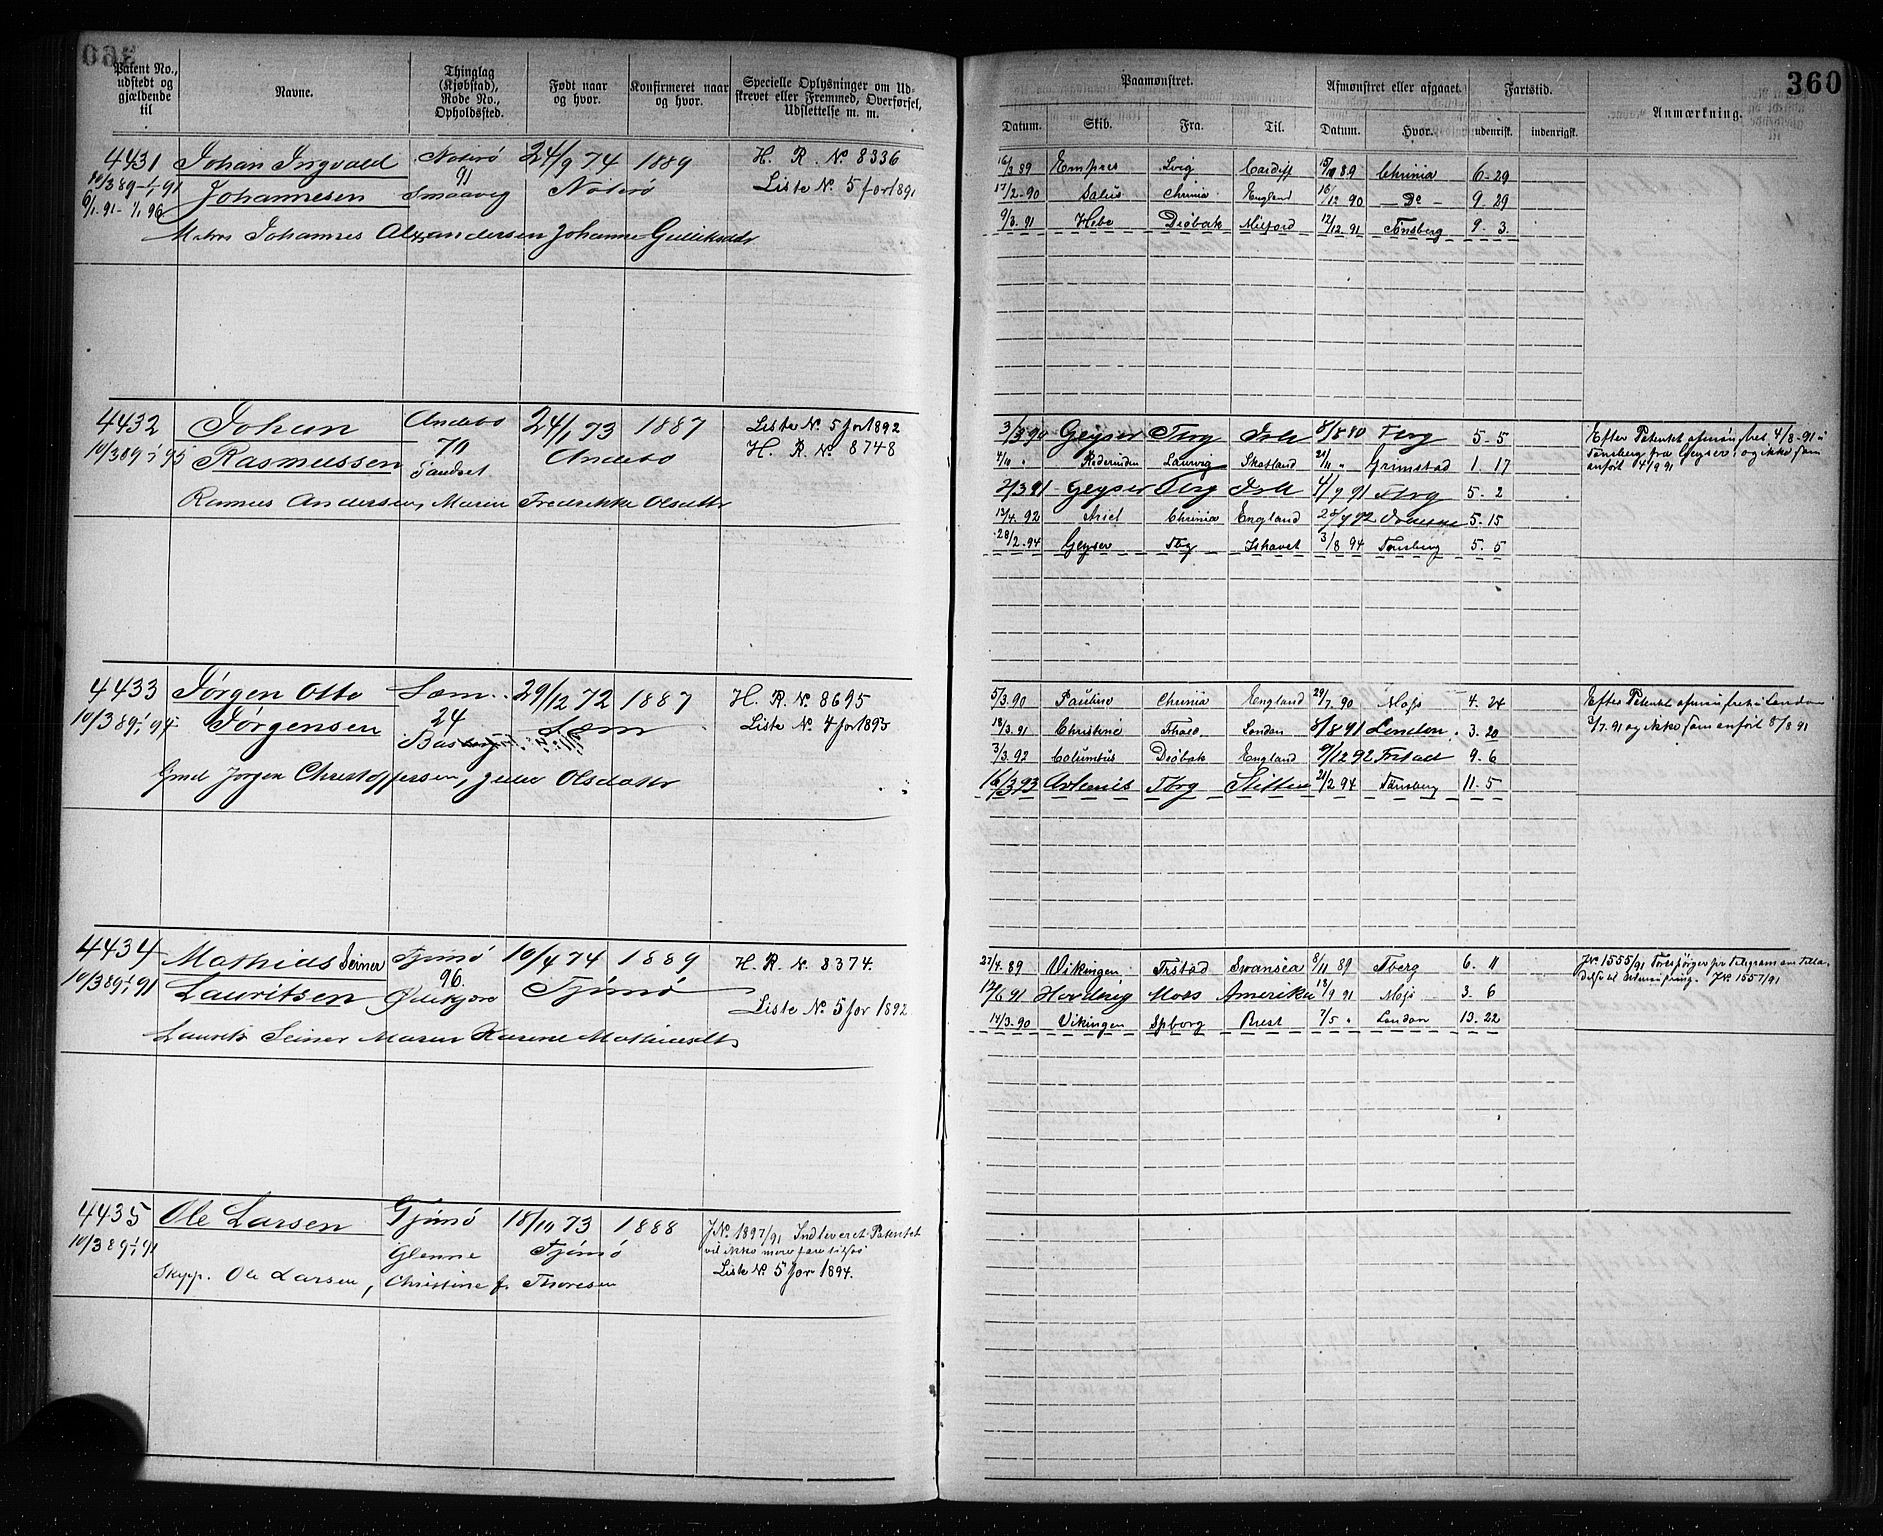 360
Patent No., udstedt og gjældende til
Navne.
Thinglag (Kjøbstad), Rode No., Opholdssted.
Født naar og hvor.
Konfirmeret naar og hvor.
Specielle Oplysninger om Udskrevet eller Fremmed, Overførsel, Udslettelse m. m.
Paamønstret.
Afmønstret eller afgaaet.
Fartstid.
Anmærkning.
Datum. Skib. Fra. Til. Datum. Hvor. udenrigsk. indenrigsk.
4431 Johan Ingvald Nøterø 24/9 74 1889 H. R. No 8336
10/3 89-1/1 91 91 Liste No 5 for 1891
6/1 91- 1/1 96 Johannesen Smaavig Nøterø
Matros Johannes Alexandersen Johanne Gulliksdtr
16/3 89 Empres Lvig Cardiff 15/10 89 Chrinia 6-29
17/2-90 Salus Chrinia England 16/12 90 — Do — 9-29
9/3.91 Hebe Drøbak Milford 12/12.91 Tønsberg 9-3
4432 Johan Andebo 24/1 73 1887 Liste No 5 for 1892
10/3 89-1/1 95 Rasmussen 70 Andebo H. R. No 8748
Rasmus Andersen, Maren Fredrikke Olsdtr
3/3 90 Geyser Tbrg Ish 8/8 80 Tbrg 5-5
4/10 " Laurvig Skotland 21/11 " Grimstad 1. 17
2/3 91 Geyser Tbrg Ish 4/9 91 Tbrg 5-2
13/4.92 Ariel Chrinia England 5-15
28/2-94 Geyser Tbg Ishavet 3/8 94 Tønsberg 5.5
Efter Patentet afmønstret 4/8-91 i
Tønsberg fra Geyser og ikke som
anført 4/9 91
4433 Jørgen Otto Sæm 29/12 72 1887 H. R. No 8695
10/3 89-1/1 94 Jørgensen 24 Sæm Liste No 4 for 1895
Gmd Jørgen Christoffersen, Olsdatter
5/3.90 Pauline Chrinia England 29/7.90 Moss 4.24
18/3.91 Christine London 8/8 91 London 3.20
3/3.92 Columbus Drøbak England 9/12 92 Frstad 9.6
16/3 93 Artemis Tbrg Stettin 21/2 94 Tønsberg 11-5
Efter Patentet afmønstret i London
7.91 og ikke som anført 8/8 91
4434 Mathias Seiner Tjømø 10/4 74 1889 H. R. No 8374.
10/3 89-1/1 91 Lauritsen 96. Tjømø
Liste No 5 for 1892
Laurits Seiner Maren Karene Mathiasdtr
27/4.89 Vikingen Frstad Swansea 8/11 89 Tberg 6. 11
Moss Amerika 18/9 91 Moss 3. 6
14/3.90 Vikingen Spborg Brest 7/5 " London 13.22
JNo 1555/91 Forespørger pr Telegram om Tilladelse til Afmønstring. JNo 1557/91
4435 Ole Larsen Tjømø 18/10 73 1888 JNo 1897/91 Indleveret Patentet
10/3 89-1/1 91 Glenne Tjømø vil ikke mere fare tilsøs
Liste No 5 for 1894.
Skypp. Ole Larsen, Christine f. Thoresen